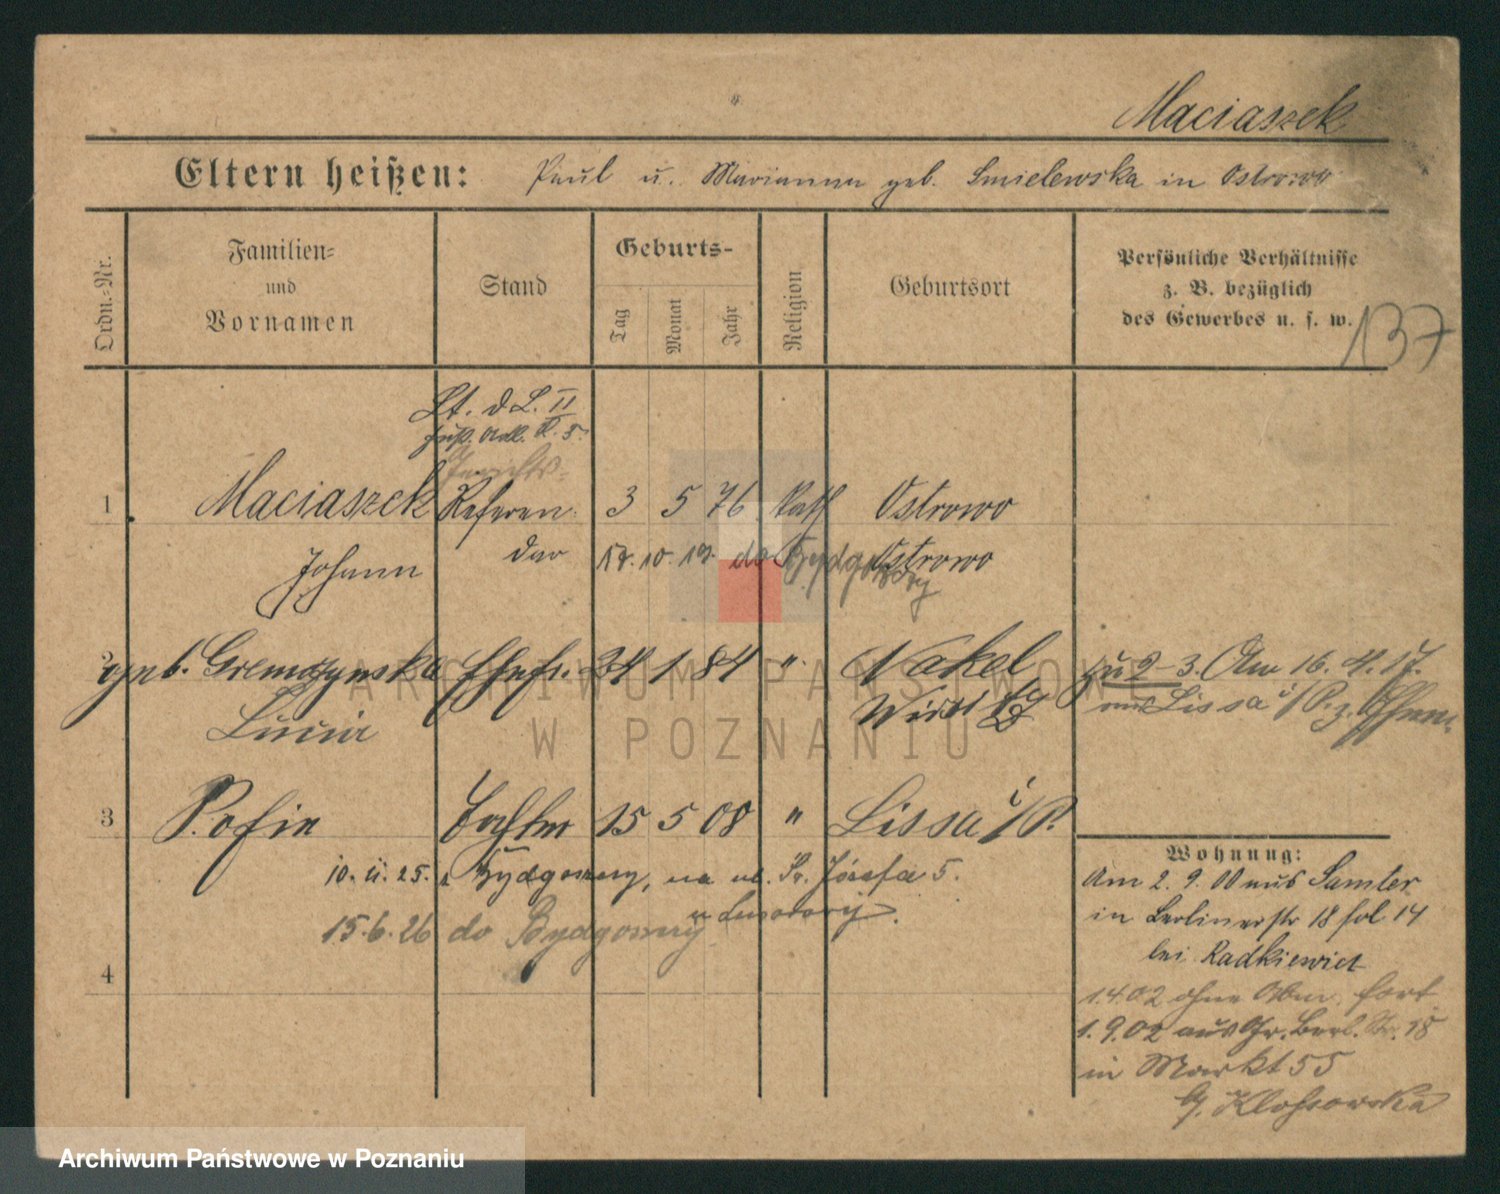 Maciaszek
Eltern heißen: Paul u. Marianna geb. Smielewska in Ostrowo
Ordn.-Nr.
Familien-
und
Vornamen
Stand
Geburts-
Tag
Monat
Jahr
Religion
Geburtsort
Persönliche Verhältnisse
z. B. bezüglich
des Gewerbes u. s. w.
137
Lt. d. L. II
Fuß. Art. R. 5.
Gerichts-
1 Maciaszek Referen- 3 5 76 kath Ostrowo
Johann dar 18. 10. 19. do Bydgoszczy Ostrowo
2 geb. Ehefr. 24 1 84 " Nakel
Lucia
zu 2-3. Am 16. 4. 17.
aus Lissa i/P. z.
3 Sofie Tochter 15 5 08 " Lissa i/P.
10. 11. 25. z Bydgoszczy, na ul. Św. Józefa 5.
15. 6. 26 do Bydgoszczy
4
Wohnung:
Am 2. 9. 00 aus Samter
in Berlinerstr 18 fol 14
bei Radkiewicz
1.4.02 ohne Abm. fort
1.9.02 aus Gr. Berl. Str. 18
in Markt 55
b/. Klossowska
ARCHIWUM PAŃSTWOWE
W POZNANIU
Archiwum Państwowe w Poznaniu